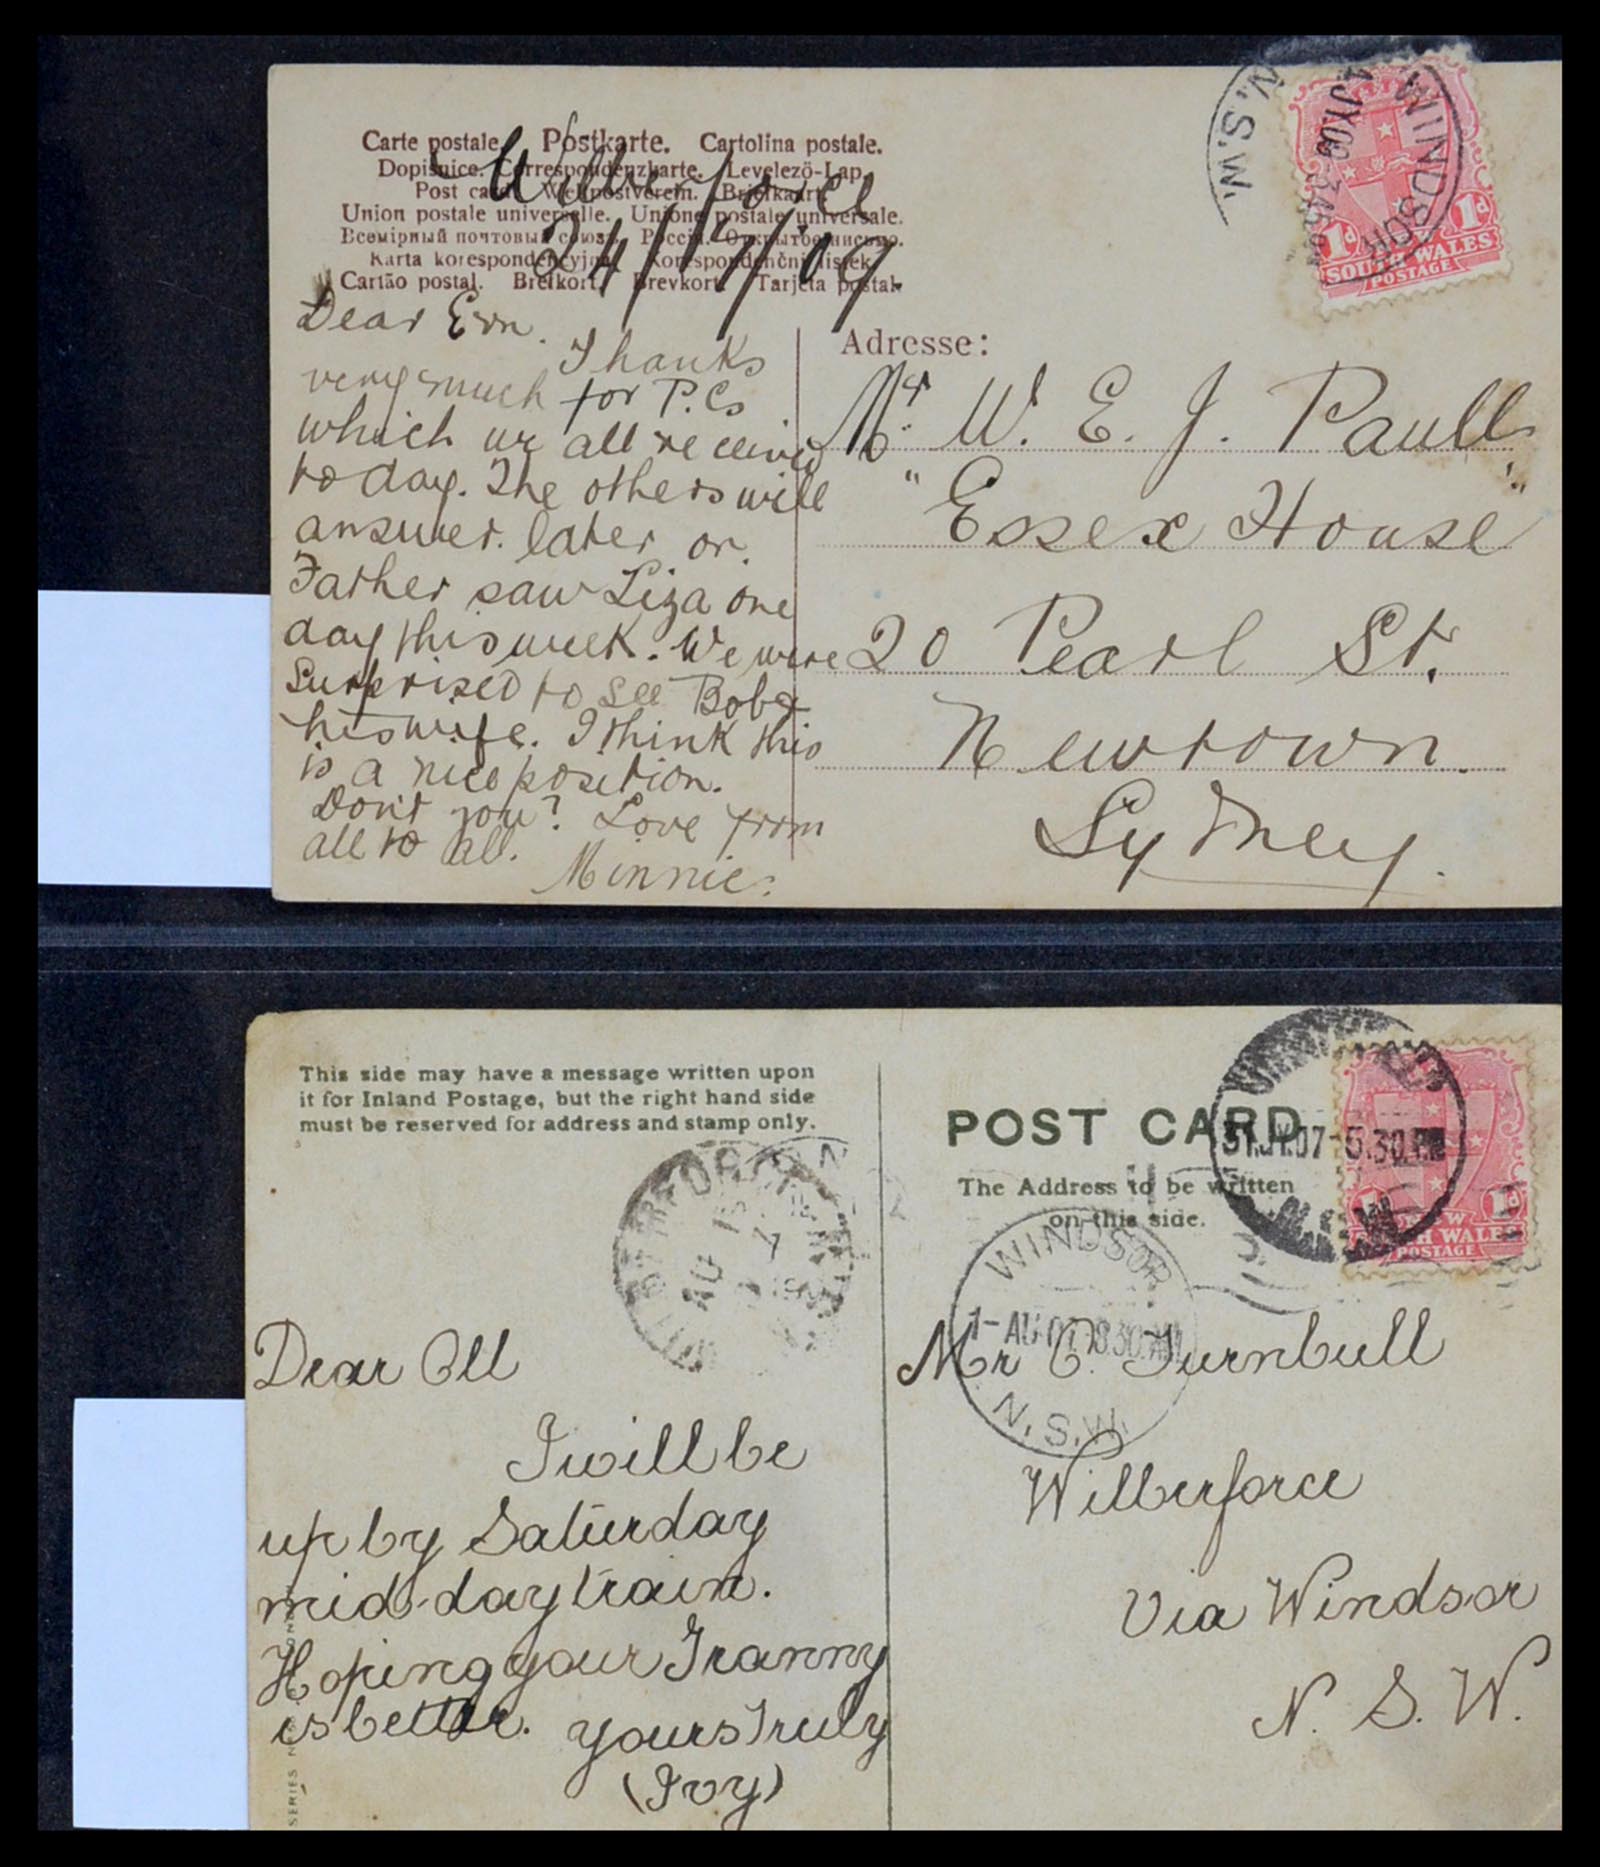 Carte postale. Postkarte. Cartolina postale.
Dopisnice. Correspondenzkarte. Levelező-Lap.
Post card. Weltpostverein. Briefkaart.
Union postale universelle. Unione postale universale.
Всемірный почтовый союзъ. Россія. Открытое письмо.
Karta korespondencyjna. Korespondenční lístek.
Cartão postal. Brefkort. Brevkort. Tarjeta postal.
Wilberforce
24/7/09.
WINDSOR
JY.09
N.S.W.
1d 1d
SOUTH WALES
POSTAGE
Dear Ern.
Thanks
very much for P.Cs
which we all received
to day. The others will
answer. later on.
Father saw Liza one
day this week. We were
Surprised to see Bob &
his wife. I think this
is a nice position.
Don't you? Love from
all to all.
Minnie.
Adresse:
Mr. W. E. J. Paull
"Essex House"
20 Pearl St.
Newtown.
Sydney.
This side may have a message written upon
it for Inland Postage, but the right hand side
must be reserved for address and stamp only.
POST CARD
The Address to be written
on this side.
31.JY.07-5.30.P.M
1d
WALES
POSTAGE
AU 1
WINDSOR
1-AU.07.8.30.AM
N.S.W.
Dear Oll
I will be
up by Saturday
mid-day train.
Hoping your Granny
is better. yours Truly
(Ivy)
Mr O. Turnbull
Wilberforce
Via Windsor
N. S. W.
SERIES N